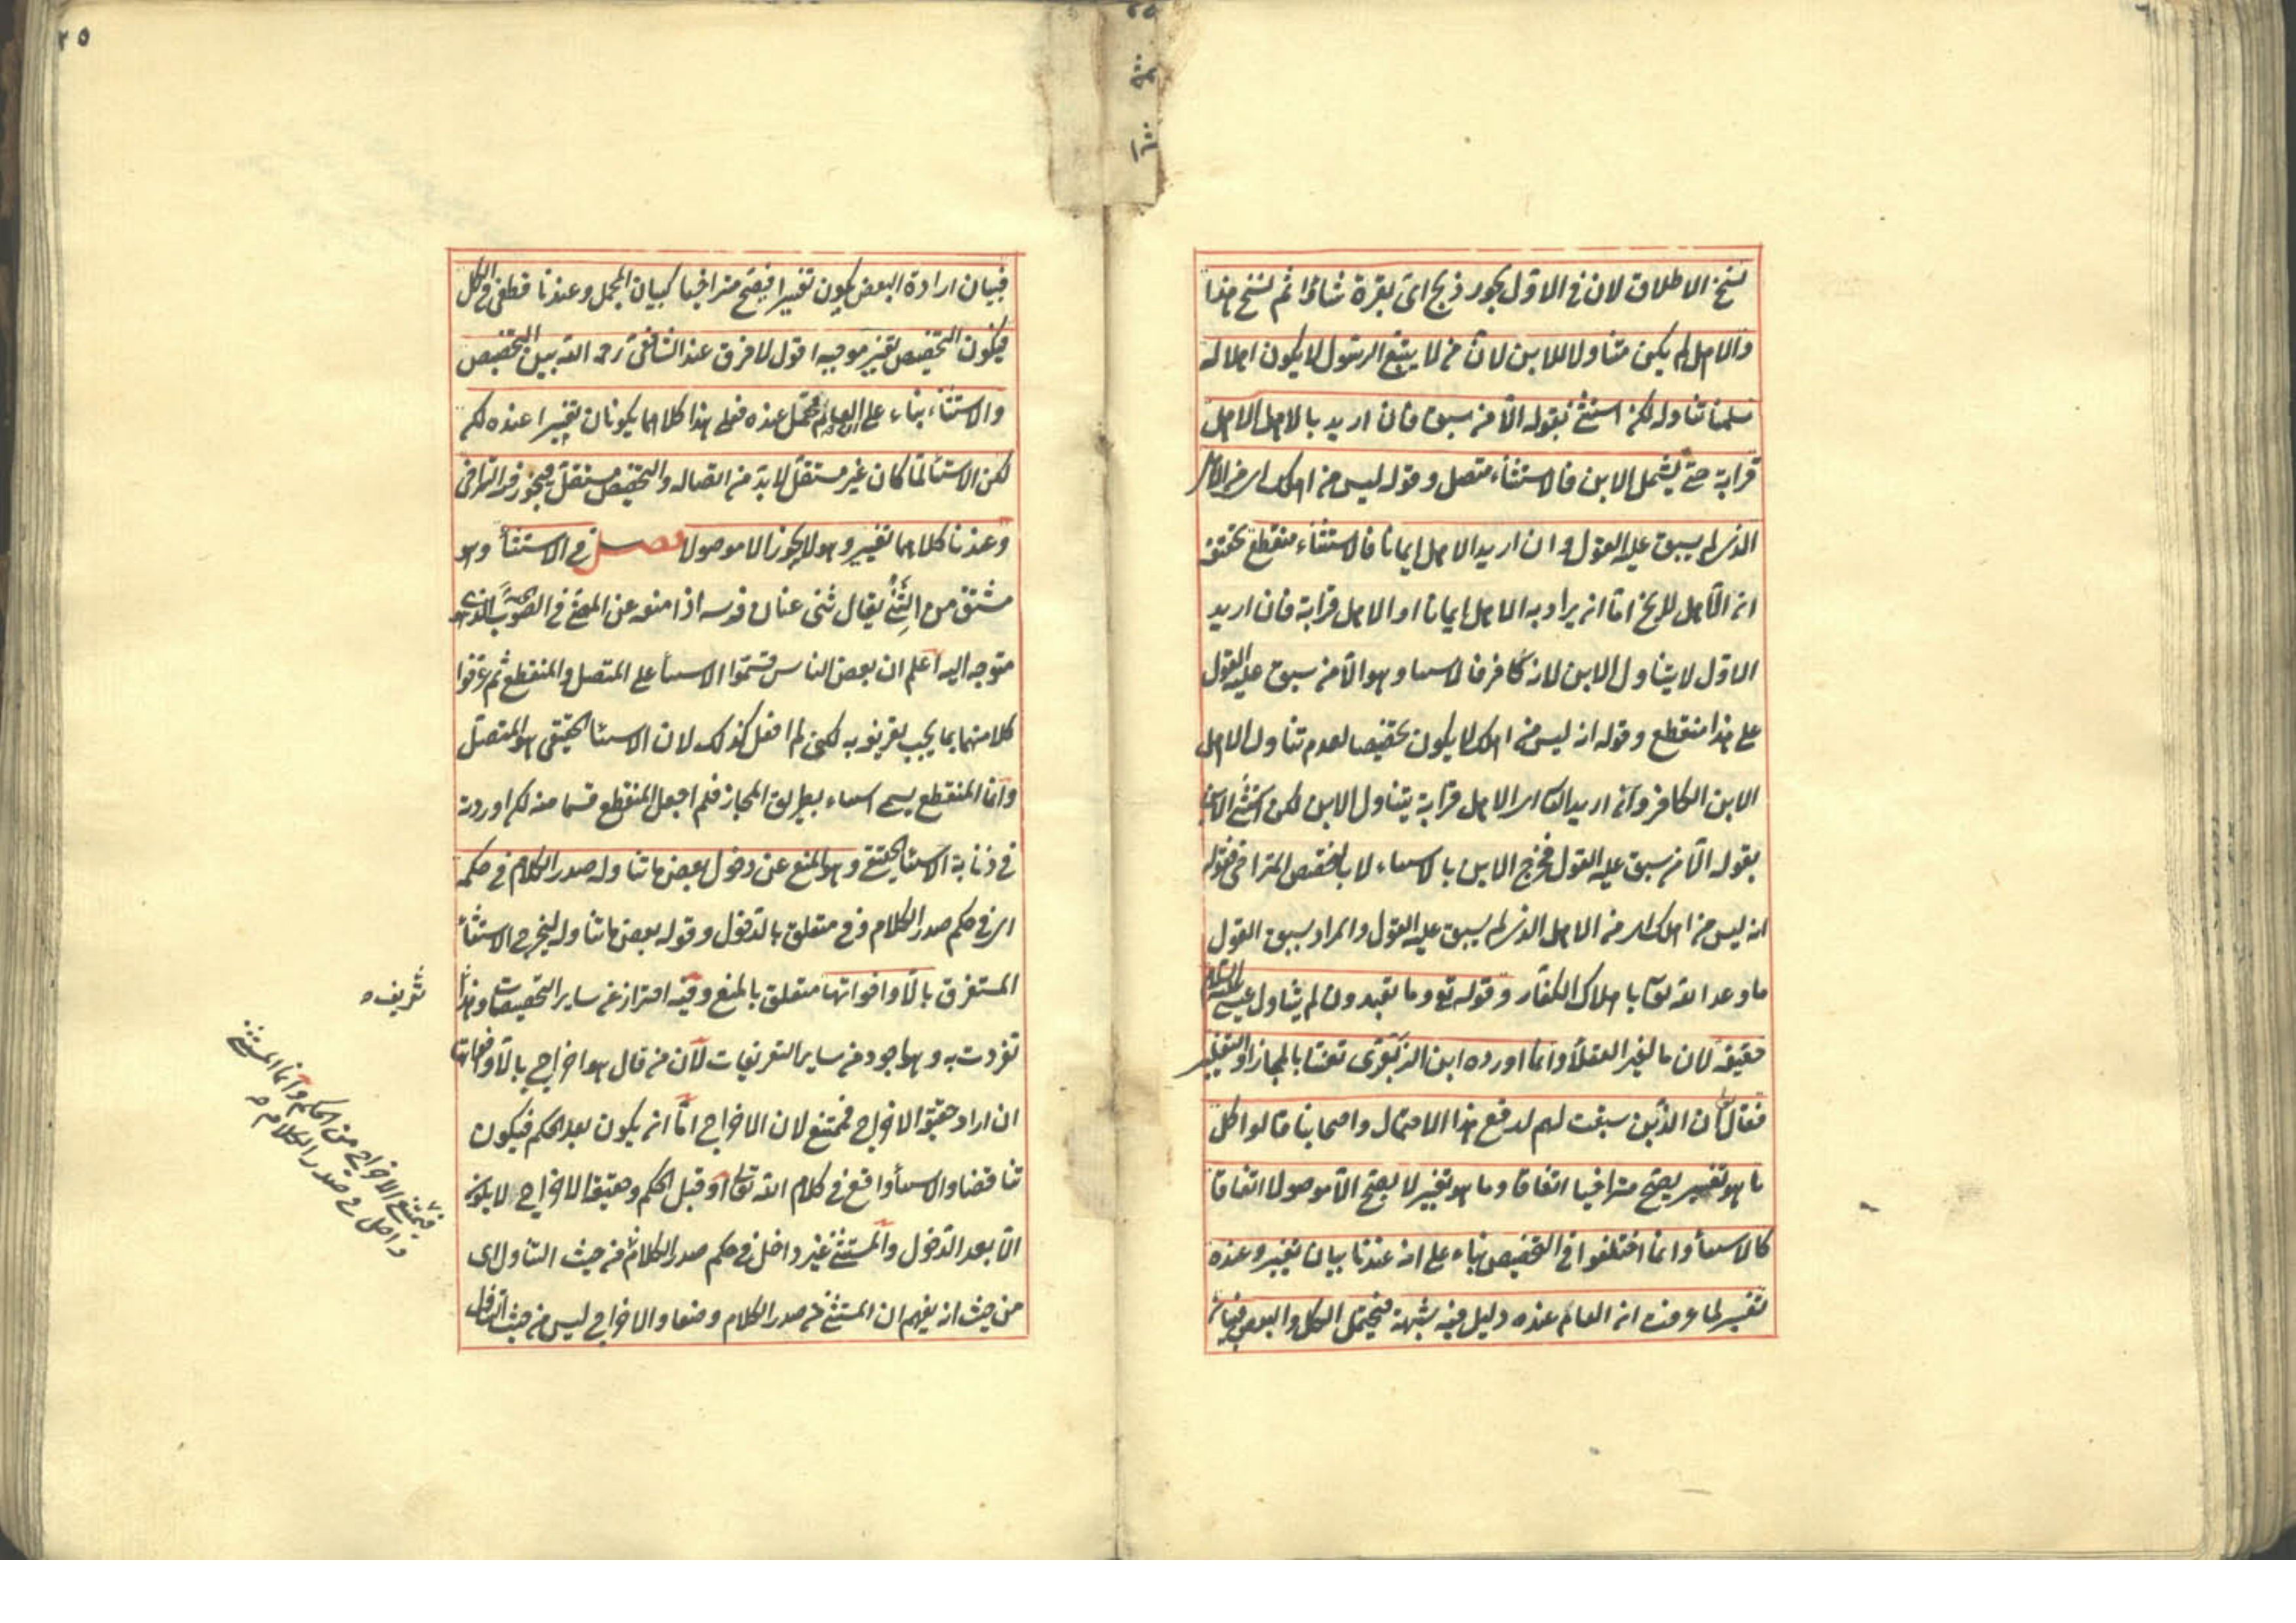 نسخ الاطلاق لان في الاول يجوز ذبح اى بقرة شاؤا ثم نسخ هذا
والاهل لم يكن متناولا للابن لان من لا يتبع الرسول لا يكون اهلا له
سلمنا تناوله لكن استثنى بقوله الا من سبق فان اريد بالاهل الاهل
قرابة حتى يشمل الابن فالاستثناء متصل وقوله ليس من اهلك اى من الاهل
الذى لم يسبق عليه القول وان اريد الاهل ايمانا فالاستثناء منقطع تحقيقه
ان الاهل للخ اما ان يراد به الاهل ايمانا او الاهل قرابة فان اريد
الاول لا يتناول الابن لانه كافر فالاستثناء وهو الا من سبق عليه القول
على هذا منقطع وقوله انه ليس من اهلك لا يكون تخصيصا لعدم تناول الاهل
الابن الكافر وان اريد الثانى اى الاهل قرابة يتناول الابن لكن استثنى الابن
بقوله الا من سبق عليه القول فخرج الابن بالاستثناء لا بالتخصيص المتراخى فقوله
انه ليس من اهلك اى من الاهل الذى لم يسبق عليه القول والمراد بسبق القول
ما وعد الله تعالى باهلاك الكفار وقوله تع وما تعبدون لم يتناول عيسى عليه السلام
حقيقة لان ما لغير العقلاء وانما اورده ابن الزبعرى تعنتا بالمجاز او التغليب
فقال ان الذين سبقت لهم لدفع هذا الاحتمال واصحابنا قالوا كل
ما هو تفسير يصح متراخيا اتفاقا وما هو تغيير لا يصح الا موصولا اتفاقا
كالاستثناء وانما اختلفوا في التخصيص بناء على انه عندنا بيان تغيير وعنده
تفسير لما عرفت ان العام عنده دليل فيه شبهة فيحتمل الكل والبعض فبيان
٢٥
فبيان ارادة البعض يكون تفسيرا فيصح متراخيا كبيان المجمل وعندنا قطعى في الكل
فيكون التخصيص تغيير موجبه اقول لا فرق عند الشافعى رحمه الله بين التخصيص
والاستثناء بناء على ان العام محتمل عنده فعلى هذا كلاهما يكونان تفسيرا عنده لكن
لكن الاستثناء لما كان غير مستقل لا بد من اتصاله والتخصيص مستقل فيجوز فيه التراخى
وعندنا كلاهما تغيير وهو لا يجوز الا موصولا فصل في الاستثناء وهو
مشتق من الثنى يقال ثنى عنان فرسه اذا منعه عن المضى في الصوب الذى هو
متوجه اليه اعلم ان بعض الناس قسموا الاستثناء على المتصل والمنقطع ثم عرفوا
كلا منهما بما يجب تعريفه به لكنى لم افعل كذلك لان الاستثناء الحقيقى هو المتصل
وانما المنقطع يسمى استثناء بطريق المجاز فلم اجعل المنقطع قسما منه لكن اوردته
في ذنابة الاستثناء الحقيقى وهو المنع عن دخول بعض ما تناوله صدر الكلام في حكمه
اى في حكم صدر الكلام وفى متعلق بالدخول وقوله بعض ما تناوله ليخرج الاستثناء
المستغرق بالا واخواتها متعلق بالمنع وفيه احتراز عن ساير التخصيصات وهذا
تعريف
تفردت به وهو اجود من ساير التعريفات لان من قال هو اخراج بالا واخواتها
ان اراد حقيقة الاخراج فممتنع لان الاخراج اما ان يكون بعد الحكم فيكون
تناقضا والاستثناء واقع في كلام الله تعالى او قبل الحكم وحقيقة الاخراج لا يكون
الا بعد الدخول والمستثنى غير داخل في حكم صدر الكلام من حيث التناول اى
من حيث انه يفهم ان المستثنى من صدر الكلام وضعا والاخراج ليس من حيث التناول
فيمتنع الاخراج من الحكم وانما المستثنى
داخل في صدر الكلام